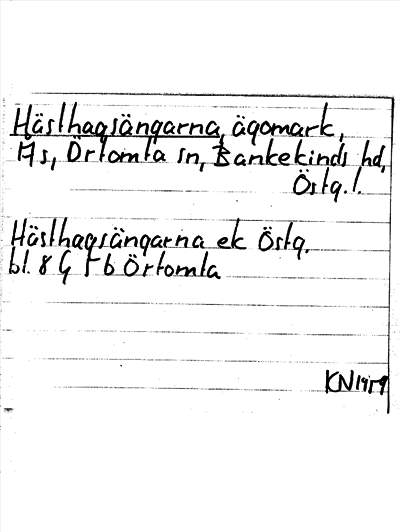 Hästhagsängarna, ägomark,
Ås, Örtomta sn, Bankekinds hd,
Östg. l.
Hästhagsängarna ek Östg.
bl. 8 G f b Örtomta
KN 1959